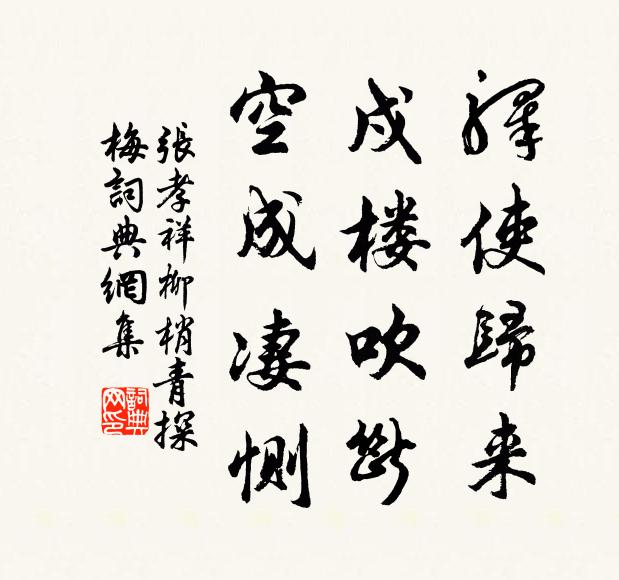 驛使歸来
戍楼吹断
空成凄惻
張孝祥柳梢青探
梅詞典網集
詞典网印